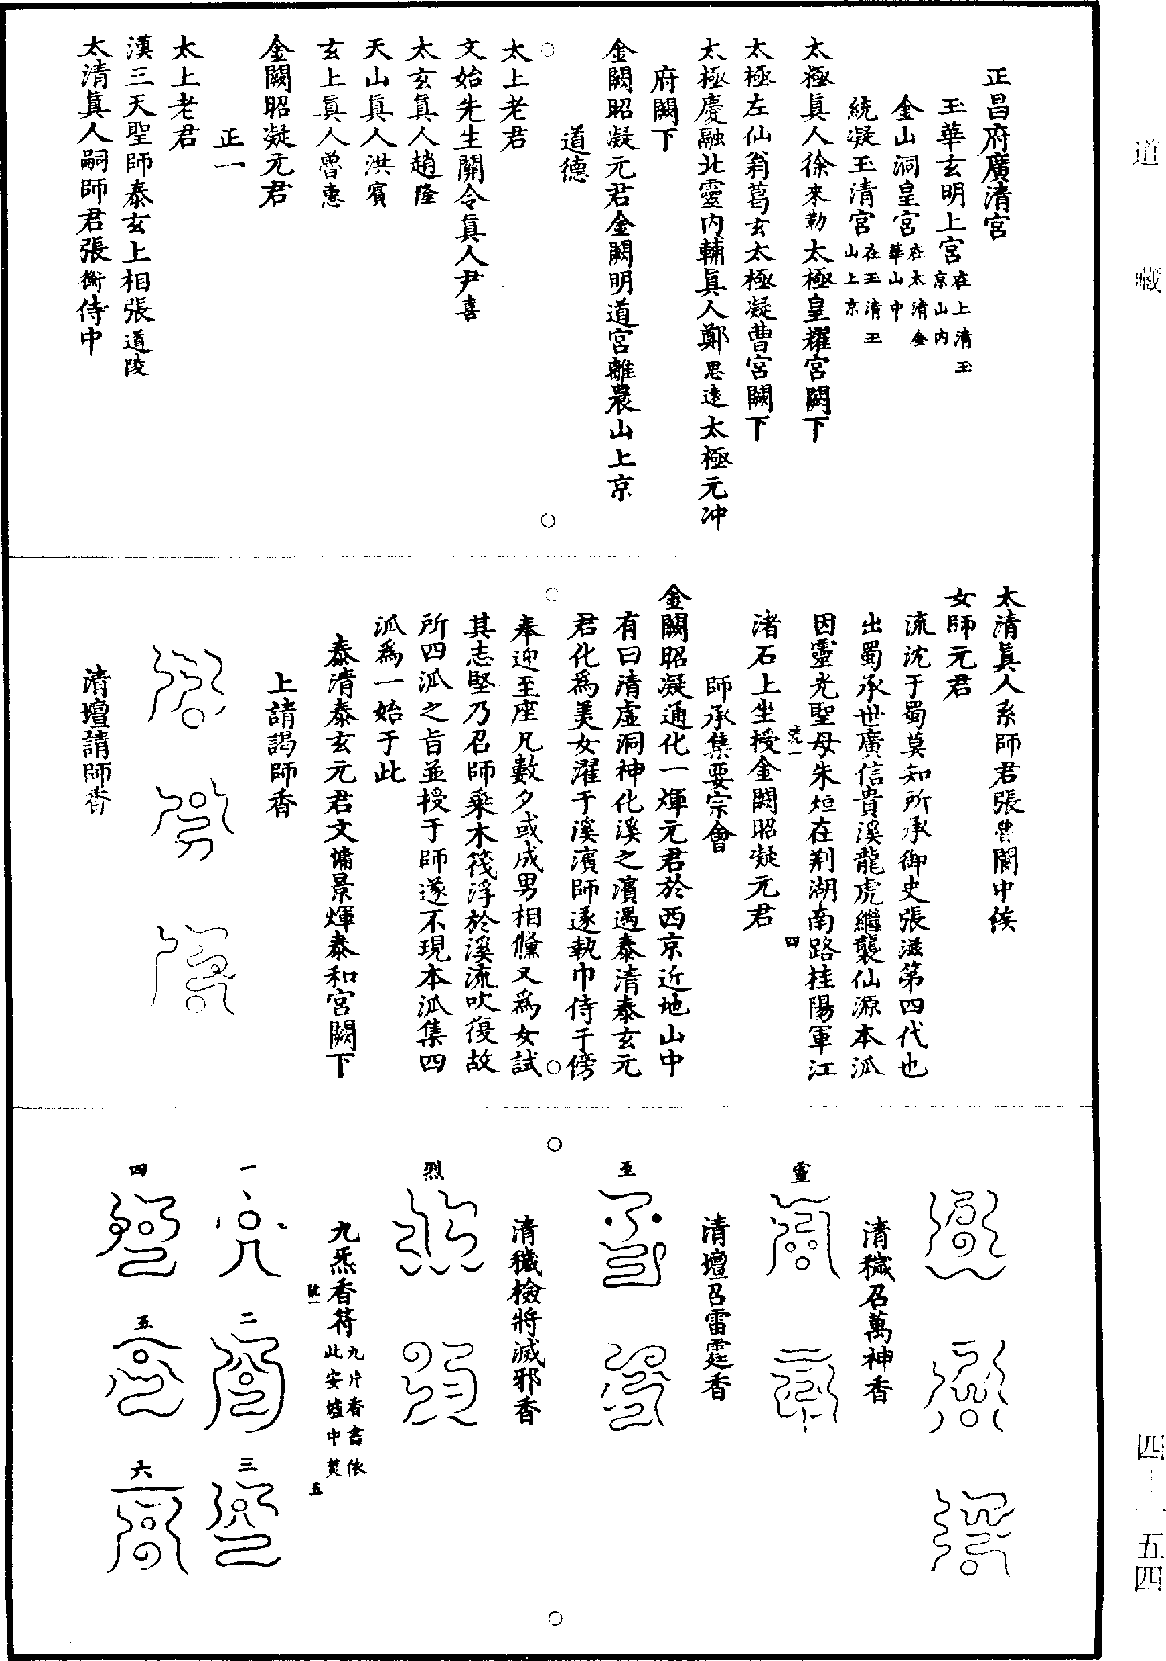 道藏
正昌府廣清宮
玉華玄明上宮在上清玉京山内
金山洞皇宮在太清金華山中
統凝玉清宮在玉清玉山上京
太極真人徐來勒太極皇耀宮闕下
太極左仙翁葛玄太極凝曹宮闕下
太極慶融北靈内輔真人鄭思遠太極元冲
府闕下
金闕昭凝元君金闕明道宮離農山上京
道德
太上老君
文始先生關令真人尹喜
太玄真人趙隆
天山真人洪賓
玄上真人曾惠
金闕昭凝元君
正一
太上老君
漢三天聖師泰玄上相張道陵
太清真人嗣師君張衡侍中
太清真人系師君張魯閬中侯
女師元君
流沈于蜀莫知所承御史張滋第四代也
出蜀承世廣信貴溪龍虎繼襲仙源本派
因靈光聖母朱烜在荆湖南路桂陽軍江
四
渚石上坐授金闕昭凝元君
師承集要宗會
金闕昭凝通化一煇元君於西京近地山中
有曰清虛洞神化溪之濱遇泰清泰玄元
君化為美女濯于溪濱師遂執巾侍于傍
奉迎至座凡數夕或成男相儵又為女試
其志堅乃召師乘木筏浮於溪流吹復故
所四派之旨並授于師遂不現本派集四
派為一始于此
泰清泰玄元君文墉景煇泰和宮闕下
上請謁師香
清壇請師香
清穢召萬神香
靈
清壇召雷霆香
至
清穢檢將滅邪香
烈
九炁香符九片香書依此安爐中焚
五
一
二
三
四
五
六
四一一五四